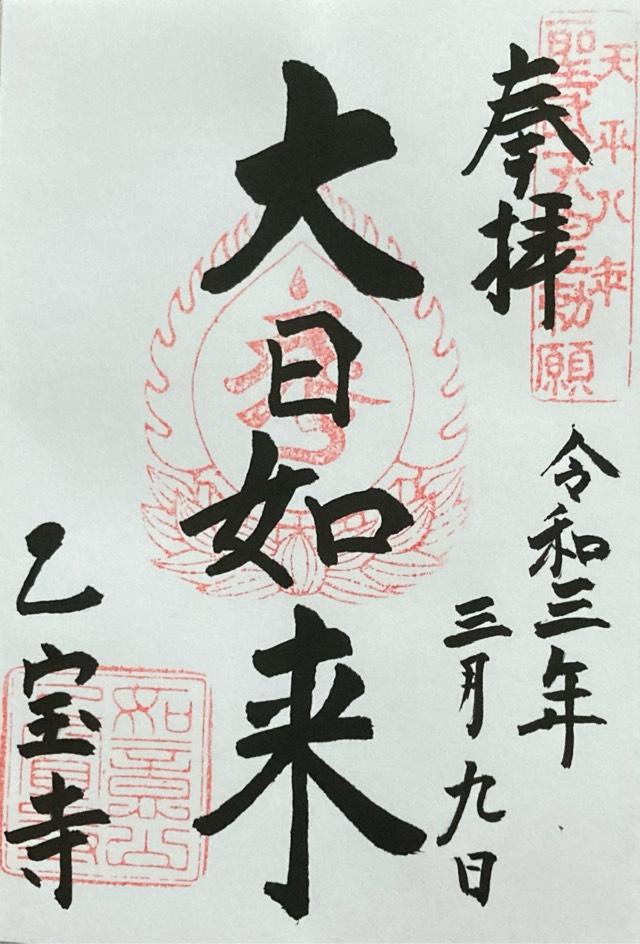 天平八年
聖武天皇勅願
奉拝
令和三年
三月九日
大日如来
乙宝寺
如意山